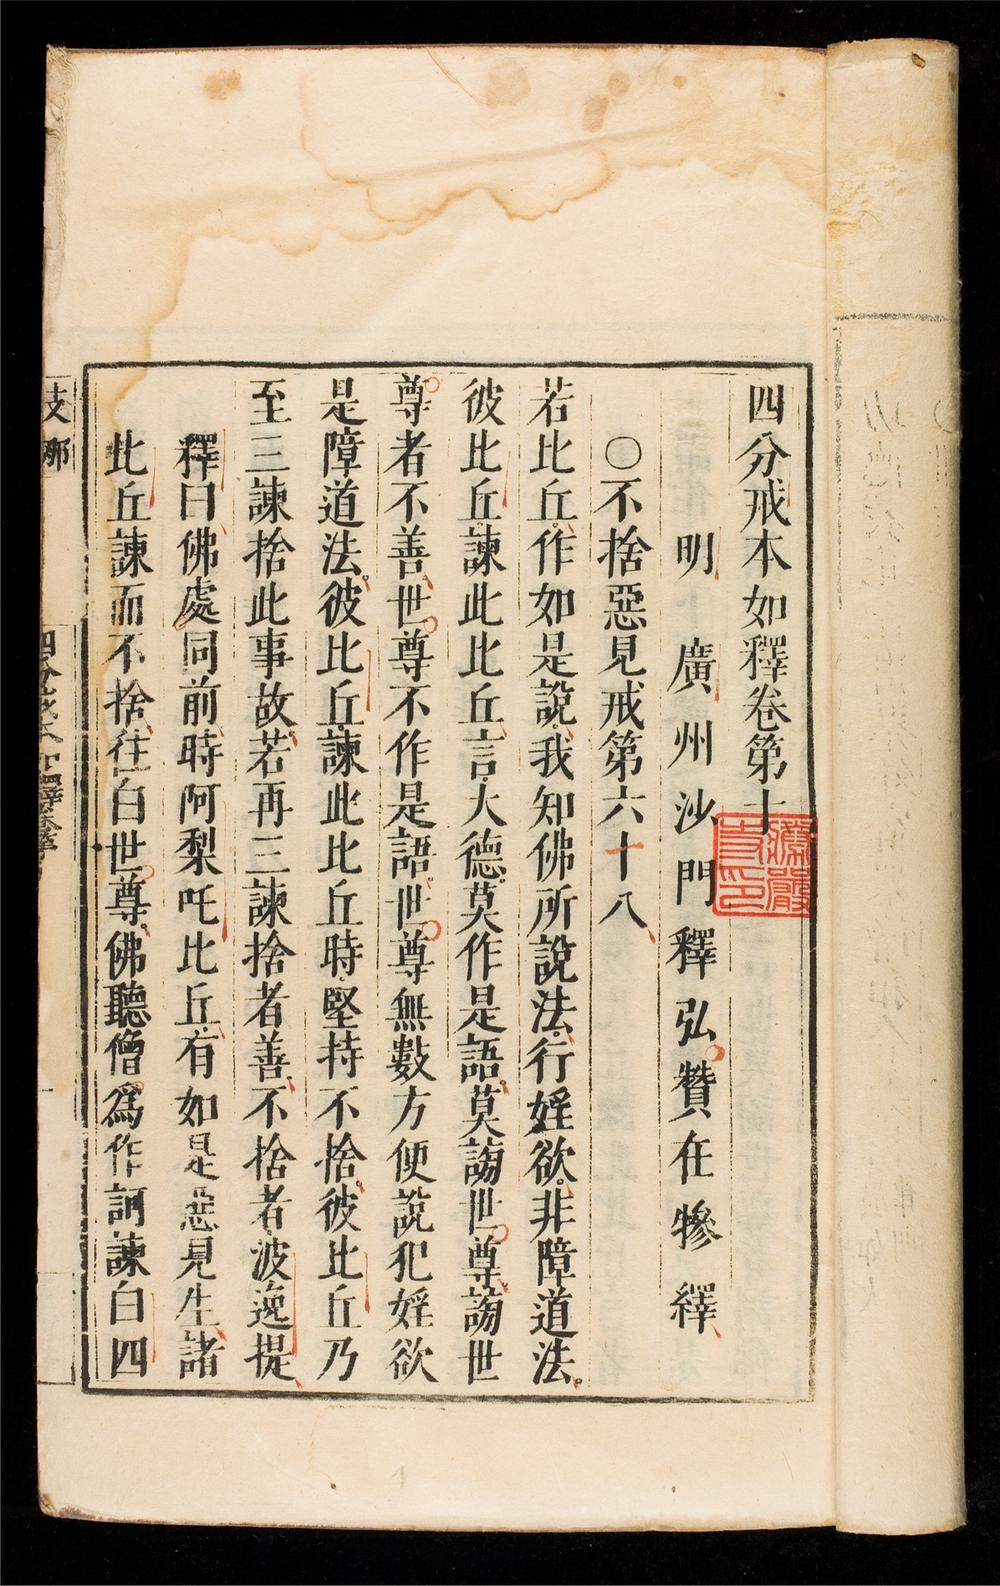 四分戒本如釋卷第十
明廣州沙門釋弘贊在犙繹
○不捨惡見戒第六十八
若比丘作如是說我知佛所說法行婬欲非障道法
彼比丘諫此比丘言大德莫作是語莫謗世尊謗世
尊者不善世尊不作是語世尊無數方便說犯婬欲
是障道法彼比丘諫此比丘時堅持不捨彼比丘乃
至三諫捨此事故若再三諫捨者善不捨者波逸提
釋曰佛處同前時阿梨吒比丘有如是惡見生諸
比丘諫而不捨往白世尊佛聽僧爲作訶諫白四
支那